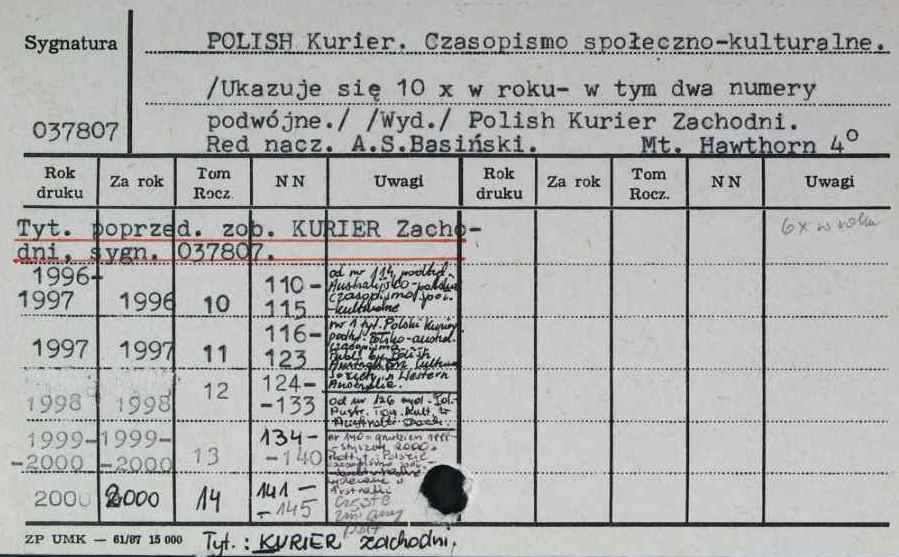 Sygnatura
POLISH Kurier. Czasopismo społeczno-kulturalne.
/Ukazuje się 10 x w roku- w tym dwa numery
podwójne./ /Wyd./ Polish Kurier Zachodni.
037807
Red nacz. A.S.Basiński. Mt. Hawthorn 4°
Rok druku Za rok Tom Rocz. NN Uwagi Rok druku Za rok Tom Rocz. NN Uwagi
Tyt. poprzed. zob. KURIER Zacho-
dni, sygn. 037807.
6x w roku
1996-1997 1996 10 110-115 od nr 114 podtyt. Australijsko-polskie czasopismo społ.-kulturalne
1997 1997 11 116-123 nr 1 tyt. Polski Kurier podtyt. Polsko-austral. czasopismo Publ. by Polish Cultural Society in Western Australia.
1998 1998 12 124--133 od nr 126 Kult. w Australii Zach.
1999--2000 1999--2000 13 134--140 nr 140 = grudzień - styczeń 2000. wydawane w Australii
2000 2000 14 141--145 Częste zmiany podt
ZP UMK — 61/87 15 000
Tyt.: KURIER zachodni.